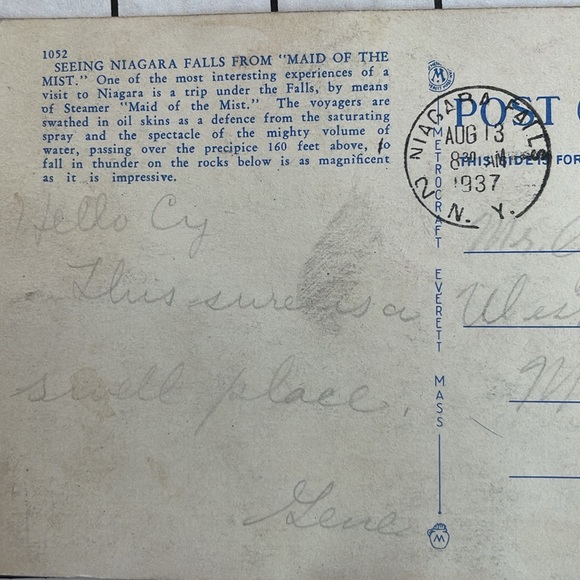 1052
SEEING NIAGARA FALLS FROM "MAID OF THE
MIST." One of the most interesting experiences of a
visit to Niagara is a trip under the Falls, by means
of Steamer "Maid of the Mist." The voyagers are
swathed in oil skins as a defence from the saturating
spray and the spectacle of the mighty volume of
water, passing over the precipice 160 feet above, to
fall in thunder on the rocks below is as magnificent
as it is impressive.
Hello Cy
This sure is a
swell place.
Gene
METROCRAFT EVERETT MASS
M
POST
THIS SIDE IS FOR
NIAGARA FALLS
2
AUG 13
8 30 AM
1937
N. Y.
Mr.